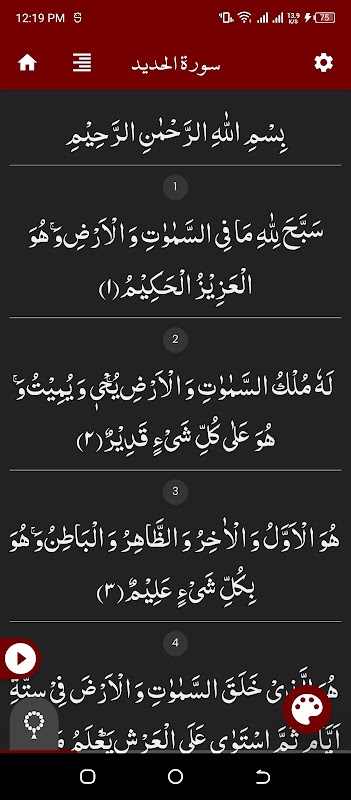 12:19 PM
13.9 K/S 75
سورة الحديد
بِسْمِ اللّٰهِ الرَّحْمٰنِ الرَّحِيْمِ
1
سَبَّحَ لِلّٰهِ مَا فِى السَّمٰوٰتِ وَ الْاَرْضِ ۚ وَ هُوَ
الْعَزِیْزُ الْحَكِیْمُ (١)
2
لَهٗ مُلْكُ السَّمٰوٰتِ وَ الْاَرْضِ ۚ یُحْیٖ وَ یُمِیْتُ ۚ وَ
هُوَ عَلٰى كُلِّ شَیْءٍ قَدِیْرٌ (٢)
3
هُوَ الْاَوَّلُ وَ الْاٰخِرُ وَ الظَّاهِرُ وَ الْبَاطِنُ ۚ وَ هُوَ
بِكُلِّ شَیْءٍ عَلِیْمٌ (٣)
4
خَلَقَ السَّمٰوٰتِ وَ الْاَرْضَ فِیْ سِتَّةِ
اَیَّامٍ ثُمَّ اسْتَوٰى عَلَى الْعَرْشِ ؕ یَعْلَمُ